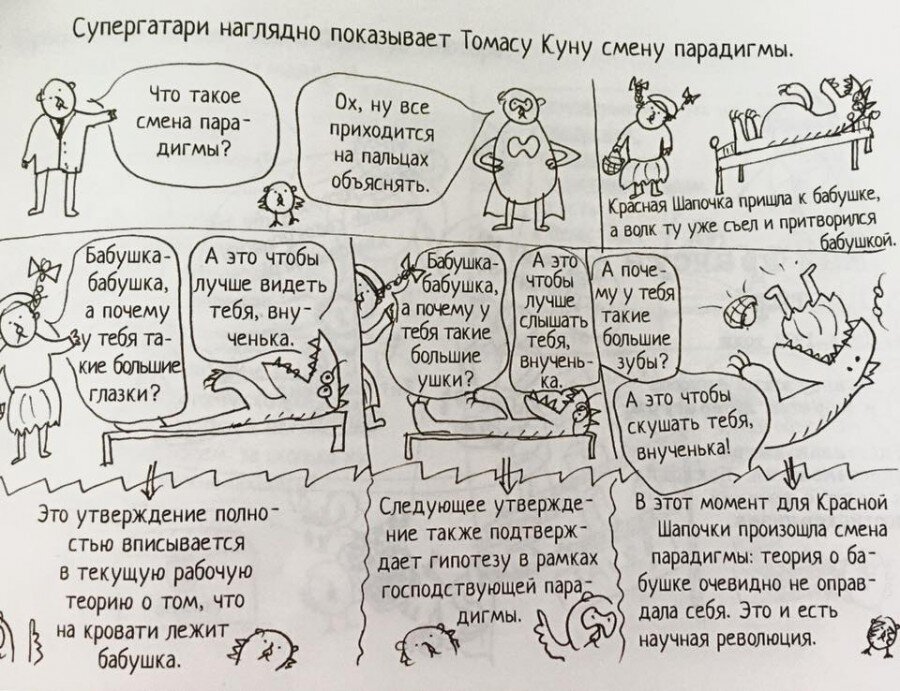 Супергатари наглядно показывает Томасу Куну смену парадигмы.
Что такое
смена пара-
дигмы?
Ох, ну все
приходится
на пальцах
объяснять.
Красная Шапочка пришла к бабушке,
а волк ту уже съел и притворился
бабушкой.
Бабушка-
бабушка,
а почему
у тебя та-
кие большие
глазки?
А это чтобы
лучше видеть
тебя, вну-
ченька.
Бабушка-
бабушка,
а почему у
тебя такие
большие
ушки?
А это
чтобы
лучше
слышать
тебя,
внучень-
ка.
А поче-
му у тебя
такие
большие
зубы?
А это чтобы
скушать тебя,
внученька!
Это утверждение полно-
стью вписывается
в текущую рабочую
теорию о том, что
на кровати лежит
бабушка.
Следующее утвержде-
ние также подтверж-
дает гипотезу в рамках
господствующей пара-
дигмы.
В этот момент для Красной
Шапочки произошла смена
парадигмы: теория о ба-
бушке очевидно не оправ-
дала себя. Это и есть
научная революция.